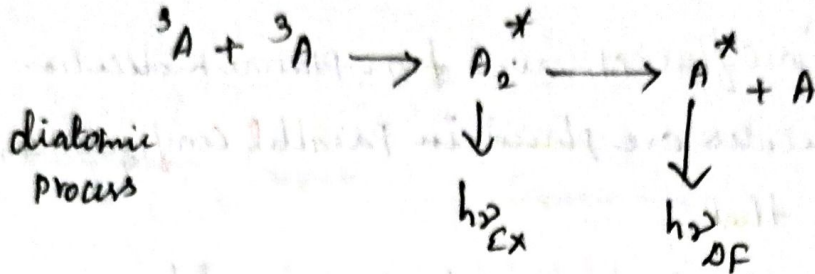 ³A + ³A ⟶ A₂* ⟶ A* + A
diatomic
process
↓ ↓
hν_Ex hν_DF